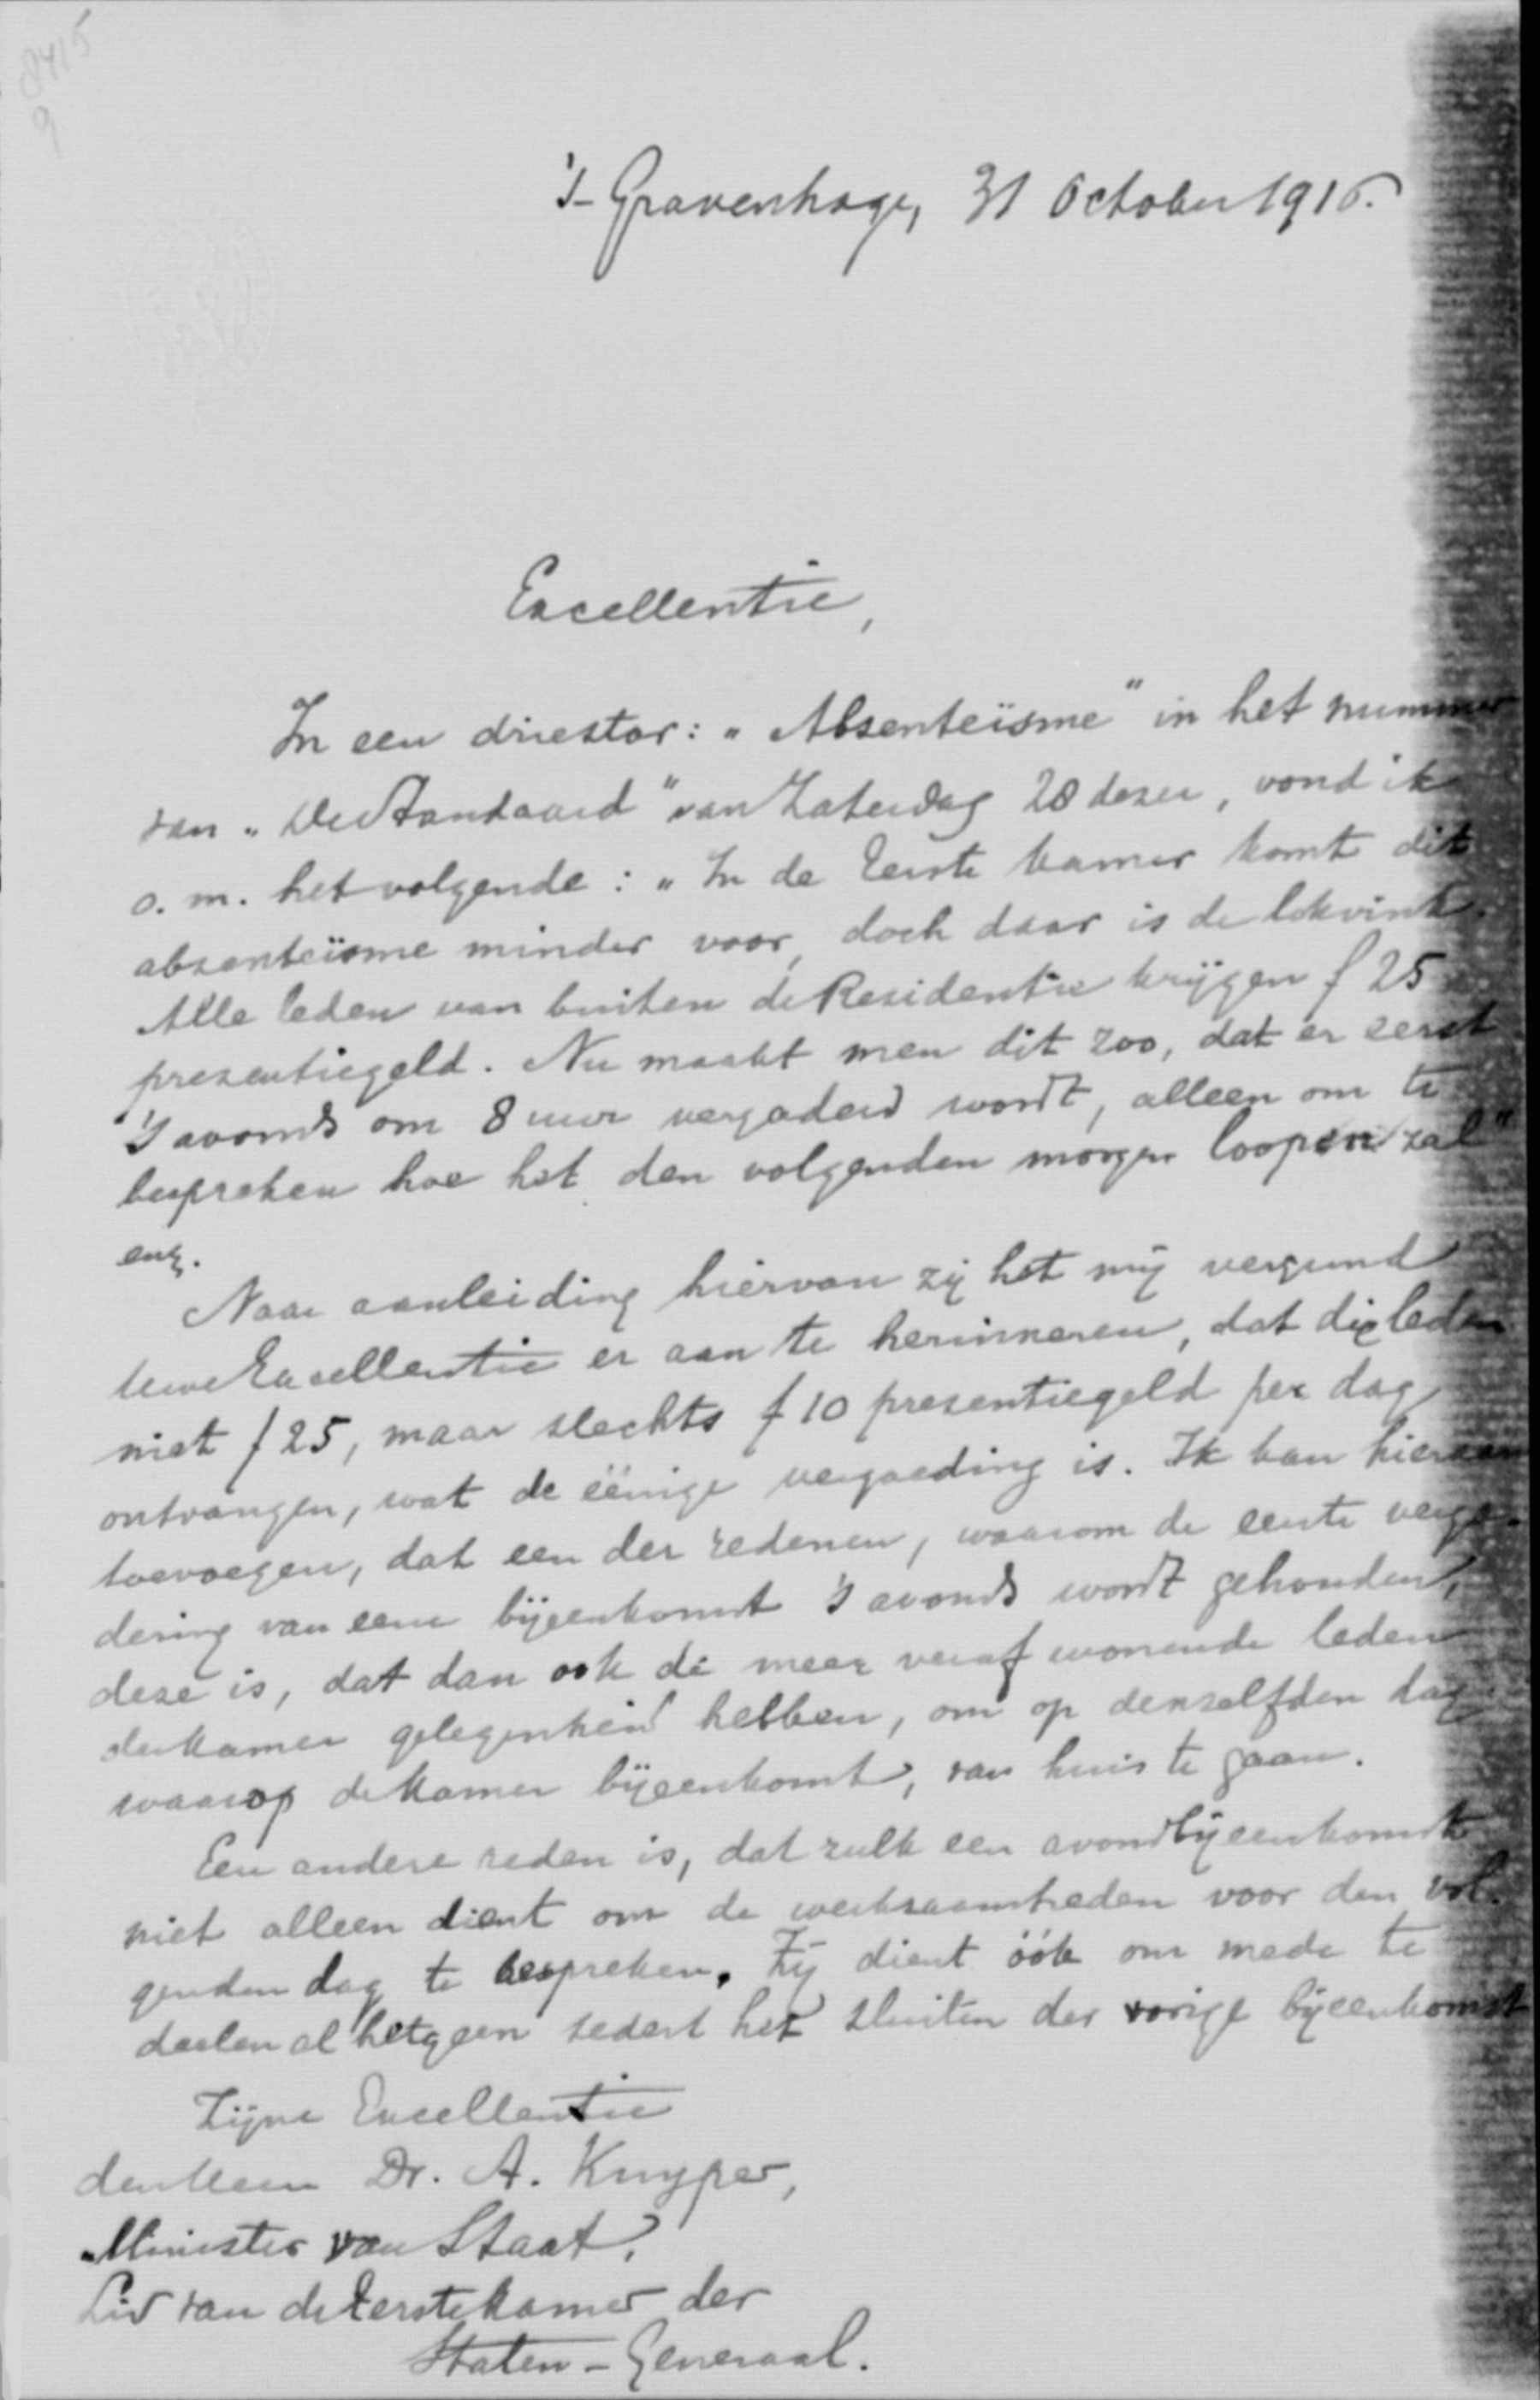 8415
9
's-Gravenhage, 31 October 1916.
Excellentie,
In een driestar: „Absenteïsme" in het nummer
van „De Standaard" van Zaterdag 28 dezer, vond ik
o.m. het volgende: „In de Eerste Kamer komt dit
absenteïsme minder voor, doch daar is de lokvink.
Alle leden van buiten de Residentie krijgen f 25
presentiegeld. Nu maakt men dit zoo, dat er eerst
's avonds om 8 uur vergaderd wordt, alleen om te
bespreken hoe het den volgenden morgen loopen zal"
enz.
Naar aanleiding hiervan zij het mij vergund
Uwe Excellentie er aan te herinneren, dat die leden
niet f 25, maar slechts f 10 presentiegeld per dag
ontvangen, wat de éénige vergoeding is. Ik kan hieraan
toevoegen, dat een der redenen, waarom de eerste verga-
dering van eene bijeenkomst 's avonds wordt gehouden,
deze is, dat dan ook de meer veraf wonende leden
der Kamer gelegenheid hebben, om op denzelfden dag
waarop de Kamer bijeenkomt, van huis te gaan.
Een andere reden is, dat zulk een avondbijeenkomst
niet alleen dient om de werkzaamheden voor den vol-
genden dag te bespreken. Zij dient óók om mede te
deelen al hetgeen sedert het sluiten der vorige bijeenkomst
Zijne Excellentie
den Heer Dr. A. Kuyper,
Minister van Staat,
Lid van de Eerste Kamer der
Staten-Generaal.